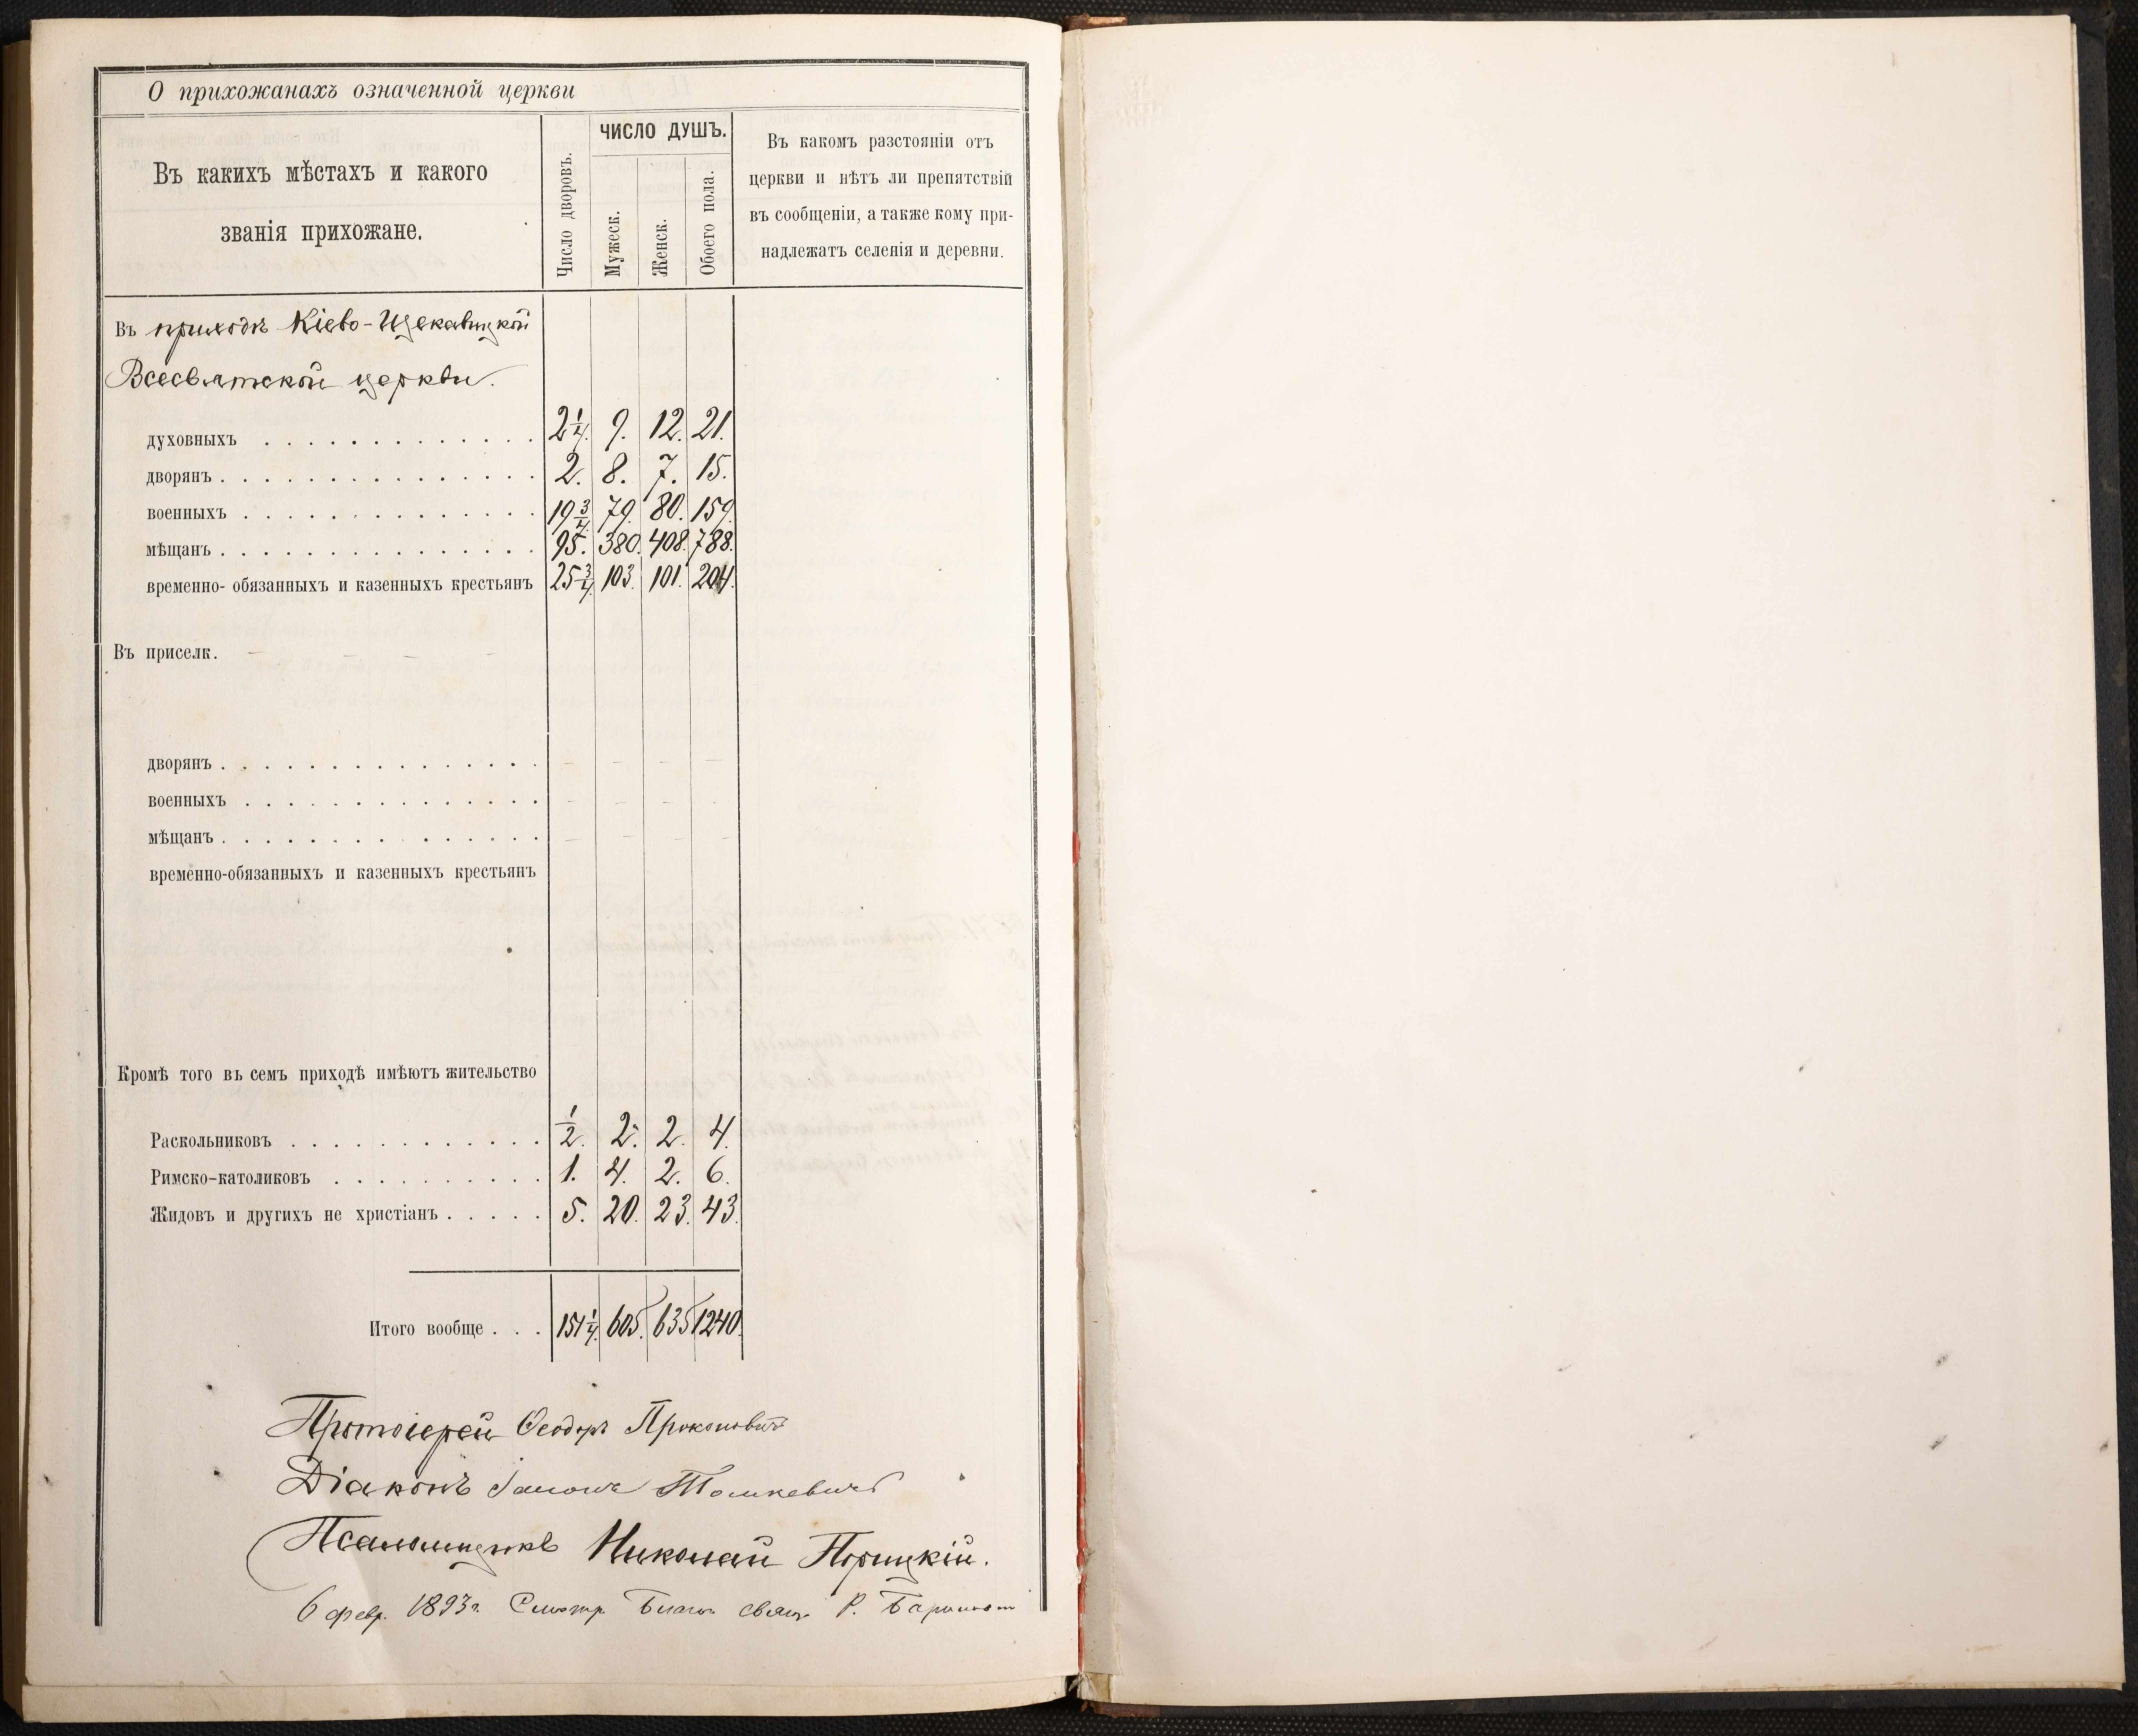 О прихожанахъ означенной церкви
Въ какихъ мѣстахъ и какого
званія прихожане.
Число дворовъ.
ЧИСЛО ДУШЪ.
Мужеск.
Женск.
Обоего пола.
Въ какомъ разстояніи отъ
церкви и нѣтъ ли препятствій
въ сообщеніи, а также кому при-
надлежатъ селенія и деревни.
Въ приходѣ Кіево-Щекавицкой
Всесвятской церкви.
духовныхъ . . . . . . . . . . . . . 2 1/4. 9. 12. 21.
дворянъ . . . . . . . . . . . . . . . 2. 8. 7. 15.
военныхъ . . . . . . . . . . . . . . 19 3/4. 79. 80. 159.
мѣщанъ . . . . . . . . . . . . . . . 95. 380. 408. 788.
временно- обязанныхъ и казенныхъ крестьянъ 25 3/4. 103. 101. 204.
Въ приселк. — — — — —
дворянъ . . . . . . . . . . . . . . . — — — —
военныхъ . . . . . . . . . . . . . . - - - -
мѣщанъ . . . . . . . . . . . . . . . — — — —
временно-обязанныхъ и казенныхъ крестьянъ
Кромѣ того въ семъ приходѣ имѣютъ жительство
Раскольниковъ . . . . . . . . . . . . 1/2. 2. 2. 4.
Римско-католиковъ . . . . . . . . . . 1. 4. 2. 6.
Жидовъ и другихъ не христіанъ . . . . . 5. 20. 23. 43.
Итого вообще . . . 151 1/4. 605. 635 1240.
Протоіерей Ѳеодоръ Прокоповичъ
Діаконъ Іаковъ Тошкевичъ
Псаломщикъ Николай Порицкій.
6 февр. 1893 г. Смотр. Благоч. свящ. Р.